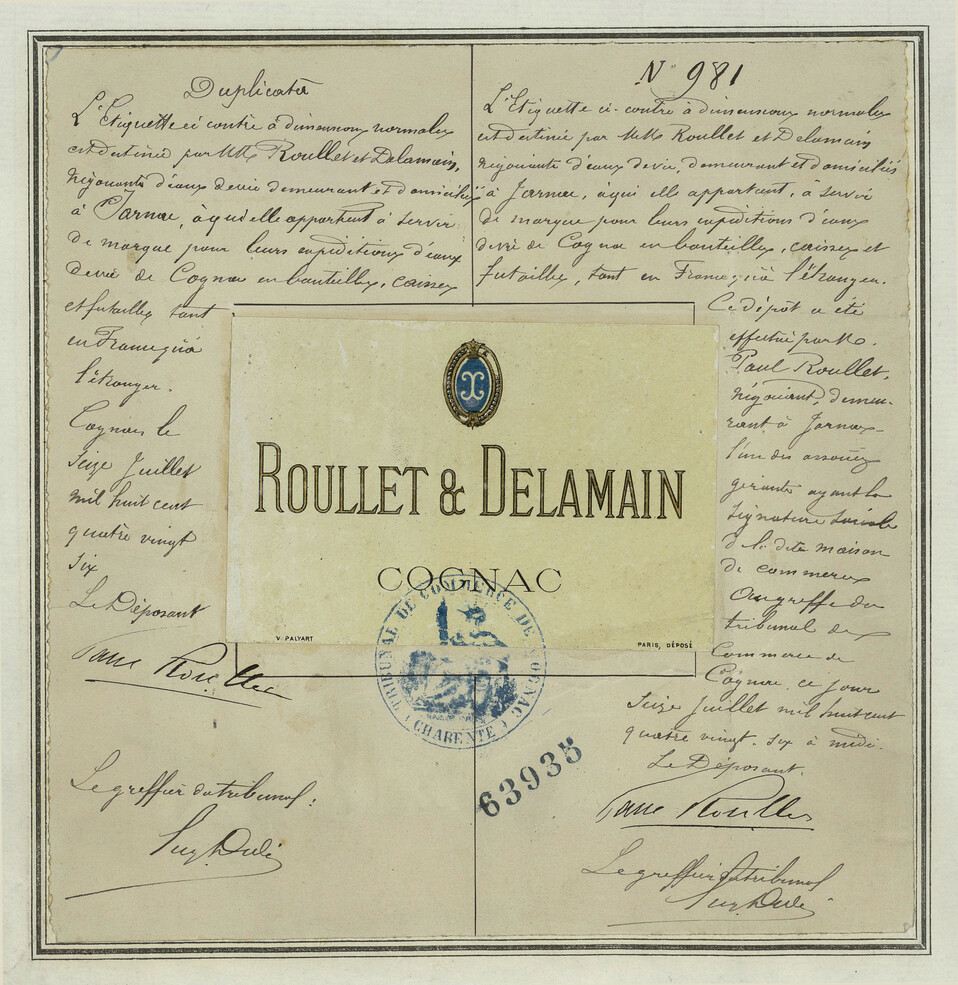 Duplicata
L'Etiquette ci contre à dimensions normales
est destinée par MM. Roullet et Delamain,
négociants d'eaux de vie demeurant et domiciliés
à Jarnac, à qui elle appartient à servir
de marque pour leurs expéditions d'eaux
de vie de Cognac en bouteilles, caisses
et futailles tant
en France qu'à
l'étranger.
Cognac le
seize Juillet
mil huit cent
quatre vingt
six
Le Déposant
Paul Roullet
Le greffier du tribunal:
N° 981
L'Etiquette ci-contre à dimensions normales
est destinée par MM. Roullet et Delamain
négociants d'eaux de vie, demeurant et domiciliés
à Jarnac, à qui elle appartient, à servir
de marque pour leurs expéditions d'eaux
de vie de Cognac en bouteilles, caisses et
futailles, tant en France qu'à l'étranger.
Ce dépôt a été
effectué par M.
Paul Roullet,
négociant, demeu-
rant à Jarnac
l'un des associés
gérants ayant la
signature sociale
de la dite maison
de commerce
au greffe du
tribunal de
Commerce de
Cognac, ce jour
seize Juillet mil huit cent
quatre vingt-six à midi.
Le Déposant.
Paul Roullet
Le greffier du tribunal
ROULLET & DELAMAIN
COGNAC
V. PALYART
PARIS, DÉPOSÉ
TRIBUNAL DE COMMERCE DE COGNAC
(CHARENTE)
63935